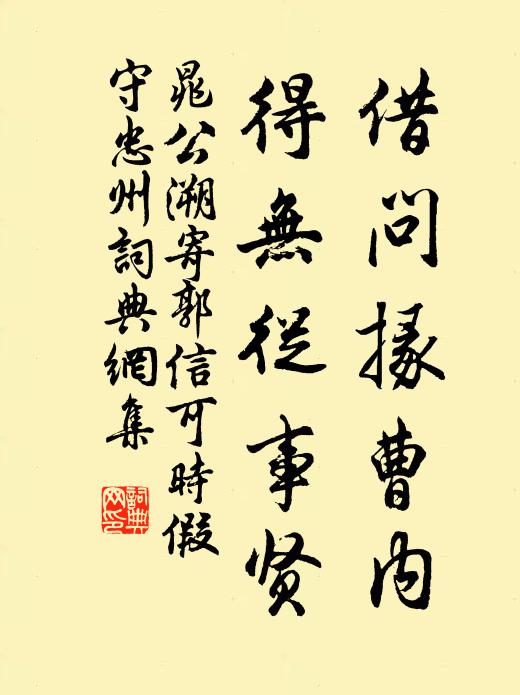 借问掾曹内
得無從事贤
晁公溯寄郭信可時假
守忠州詞典網集
詞典
网印